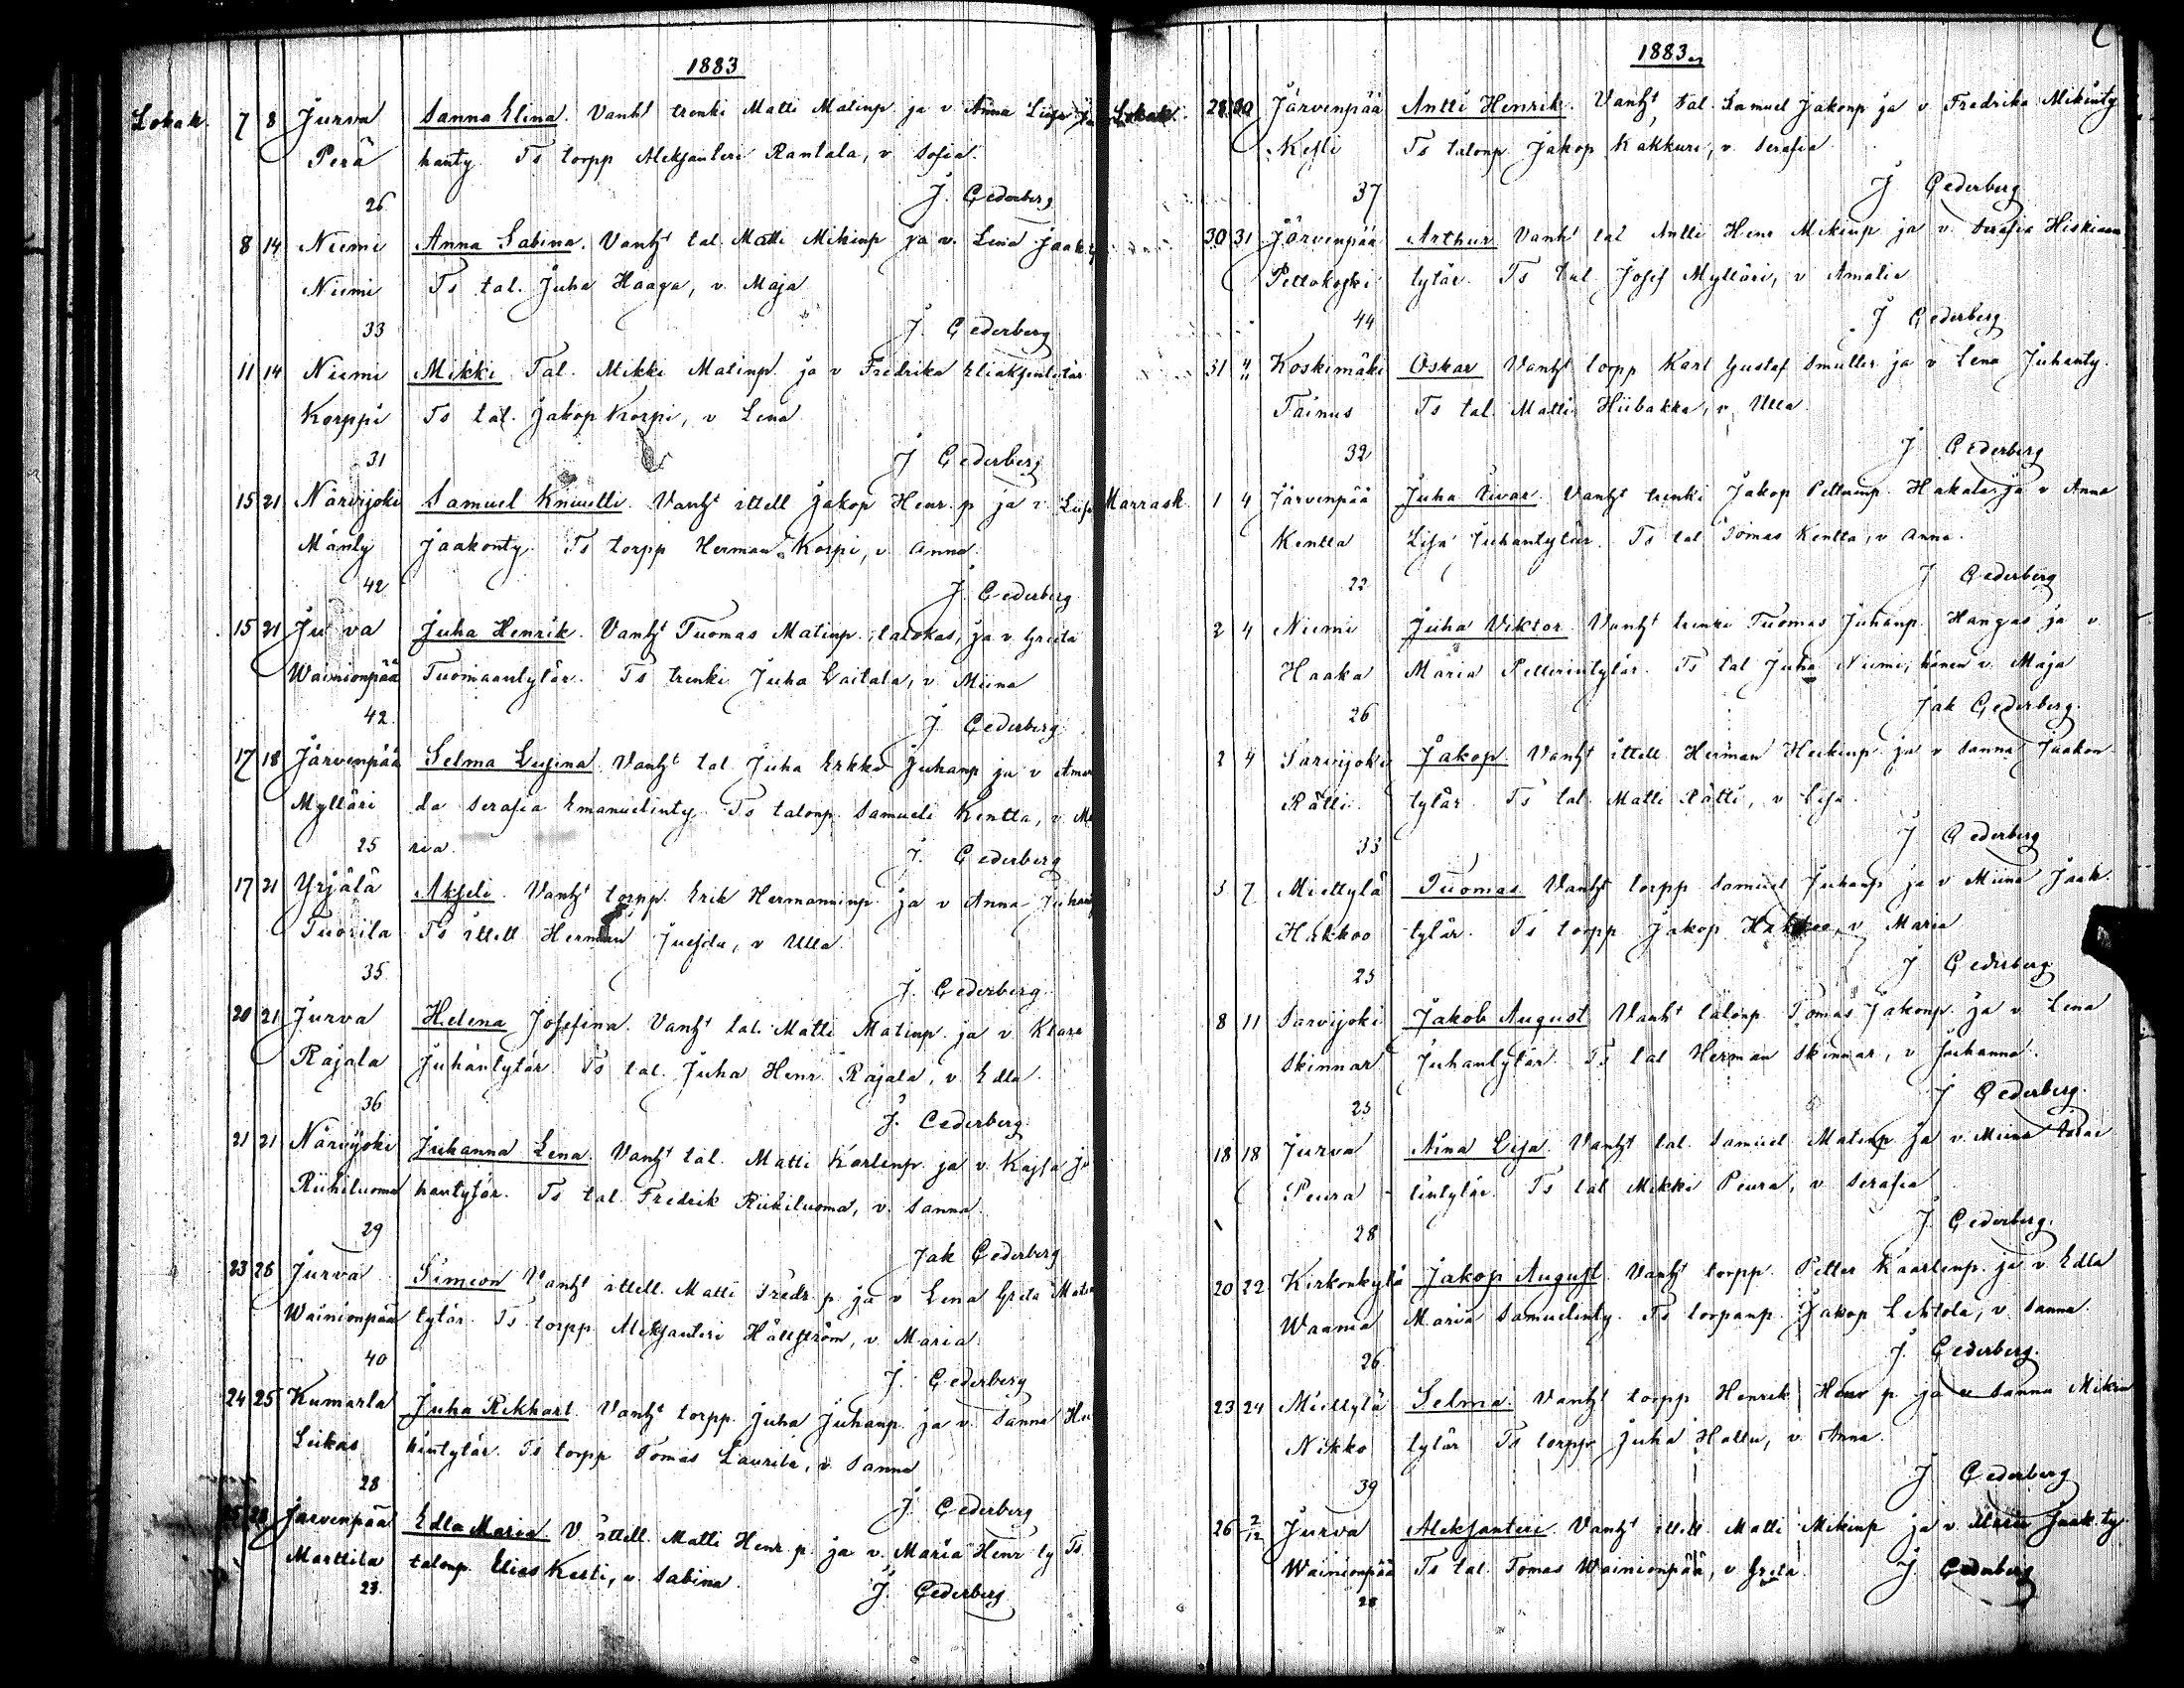 1883
Lokak. 7 8 Jurva Sanna Elina. Vanht trenki Matti Matinp ja v. Anna Liisa Ju
Perä hanty. Ts torpp Aleksanteri Rantala, v Sofia.
26 J. Cederberg
8 14 Niemi Anna Sabina. Vanht tal. Matti Mikinp ja v. Lena Jaak
Niemi Ts tal. Juha Haaga, v. Maja
33 J. Cederberg
11 14 Niemi Mikki Tal. Mikki Matinp. ja v Fredrika Eliaksentytär
Korppi Ts tal. Jakop Korpi, v Lena
31 J Cederberg
15 21 Närvijoki Samuel Knuutti. Vanht ittell Jakop Henr. p ja v. Liisa
Mänty Jaakonty. Ts torpp Herman Korpi, v Anna
42 J. Cederberg
15 21 Jurva Juha Henrik. Vanht Tuomas Matinp. talokas, ja v Greeta
Wainionpää Tuomaantytär. Ts trenki Juha Laitala, v. Miina
42. J Cederberg
17 18 Järvenpää Selma Lusina. Vanht tal. Juha Erkki Juhanp ja v Aman
Mylläri da Serafia Emanuelinty Ts talonp Samueli Kentta, v. Ma
25 ria. J. Cederberg
17 21 Yrjälä Akseli. Vanht torpp. Erik Hermanninp. ja v Anna Juhant
Tuorila Ts ittell Herman v Ulla.
35 J. Cederberg
20 21 Jurva Helena Josefina. Vanht tal. Matti Matinp. ja v. Klara
Rajala Juhantytär Ts tal. Juha Henr Rajala, v. Edla
36 J. Cederberg.
21 21 Närvijoki Juhanna Lena. Vanht tal. Matti Karlenp. ja v. Kajsa Ju
Riihiluoma hantytär. Ts tal. Fredrik Riihiluoma, v. Sanna
29 Jak Cederberg
23 28 Jurva Simeon Vanht ittell. Matti Fredr. p ja v Lena Greta Matin
Wainionpää tytär. Ts. torpp Aleksanteri Hällström, v. Maria
40 J. Cederberg
24 25 Kumarla Juha Rikhart Vanht torpp. Juha Juhanp. ja v. Sanna Hei
Leikas kintytär. Ts torpp Tomas Laurila, v. Sanna
28 J. Cederberg
25 28 Järvenpää Edla Maria. V ittell. Matti Henr. p. ja v. Maria Henr ty Ts
Marttila talonp Elias Kesti, v. Sabina.
23. J. Cederberg
1883
Lokak. 28 30 Järvenpää Antti Henrik. Vanht tal. Samuel Jakonp ja v Fredrika Mikinty
Kesti Ts talonp Jakop Kakkuri, v. Serafia
37 J Cederberg
30 31 Järvenpää Arthur Vanht tal Antti Henr Mikinp ja v. Serafia Hiskiaan
Peltokoski tytär. Ts tal Josef Mylläri, v Amalia
44 J Cederberg
31 " Koskimäki Oskar Vanht torpp Karl Gustaf Smulter ja v Lena Juhanty.
Tainus Ts tal. Matti Hiibakka, v. Ulla
32 J Cederberg
Marrask. 1 4 Järvenpää Juha Iivar. Vanht trenki Jakop Petterinp. Hakala ja v Anna
Kentta Lisa Juhantytär. Ts tal Tomas Kentta, v Anna.
22 J Cederberg
2 4 Niemi Juha Viktor. Vanht trenki Tuomas Juhanp. Hangas ja v.
Haaka Maria Petterintytär. Ts tal Juha Niemi, hänen v. Maja
26 Jak Cederberg.
2 4 Sarvijoki Jakop. Vanht ittell Herman Heikinp ja v Sanna Jaakon
Rätti tytär. Ts tal. Matti Rätti, v Lisa.
33 J Cederberg
5 7 Miettylä Tuomas Vanht torpp Samuel Juhanp ja v Miina Jaak.
Hakkoo tytär. Ts torpp Jakop v Maria
25 J Cederberg
8 11 Sarvijoki Jakob August Vanht talonp Tomas Jakonp. ja v Lena
Skinnar Juhantytär. Ts tal Herman Skinnar, v Johanna.
25 J Cederberg.
18 18 Jurva Aina Lisa. Vanht tal. Samuel Matinp ja v. Miina
Peura tintytär. Ts tal Mikki Peura, v Serafia
28 J Cederberg.
20 22 Kirkonkylä Jakop August. Vanht torpp. Petter Kaarlenp. ja v Edla
Waania Maria Samuelinty. Ts torpanp Jakop Lehtola, v. Sanna.
26. J. Cederberg.
23 24 Miettylä Selma Vanht torpp Henrik Henr p ja v Sanna Mikin
Nikko tytär Ts torpp Juha Hallu, v. Anna.
39 J Cederberg
26 2/12 Jurva Aleksanteri. Vanht ittell. Matti Mikinp ja v. Jaak.ty.
Wainionpää Ts tal. Tomas Wainionpää, v Greta. J. Cederberg
28